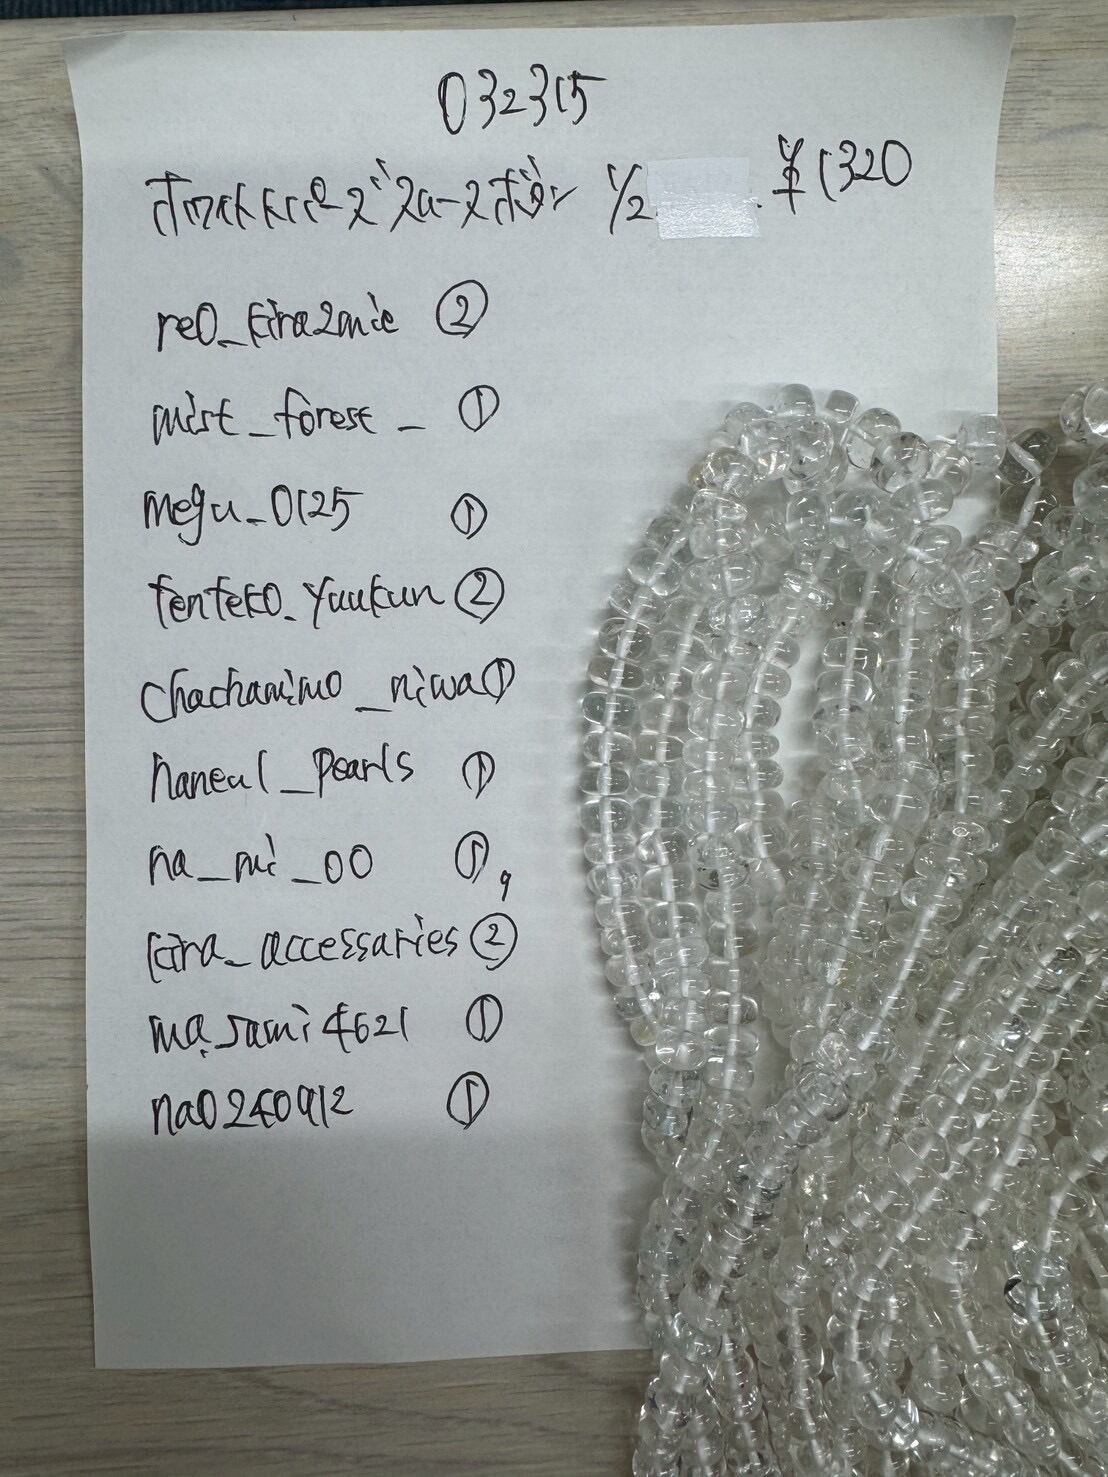 032315
1/2 ¥1320
re0_kira2mie ②
mist_forest_ ①
megu_0125 ①
tenteko.yuukun ②
chachamimo_niwa ①
haneul_pearls ①
na_mi_00 ①,9
kira_accessaries ②
ma.sami4621 ①
na0240912 ①